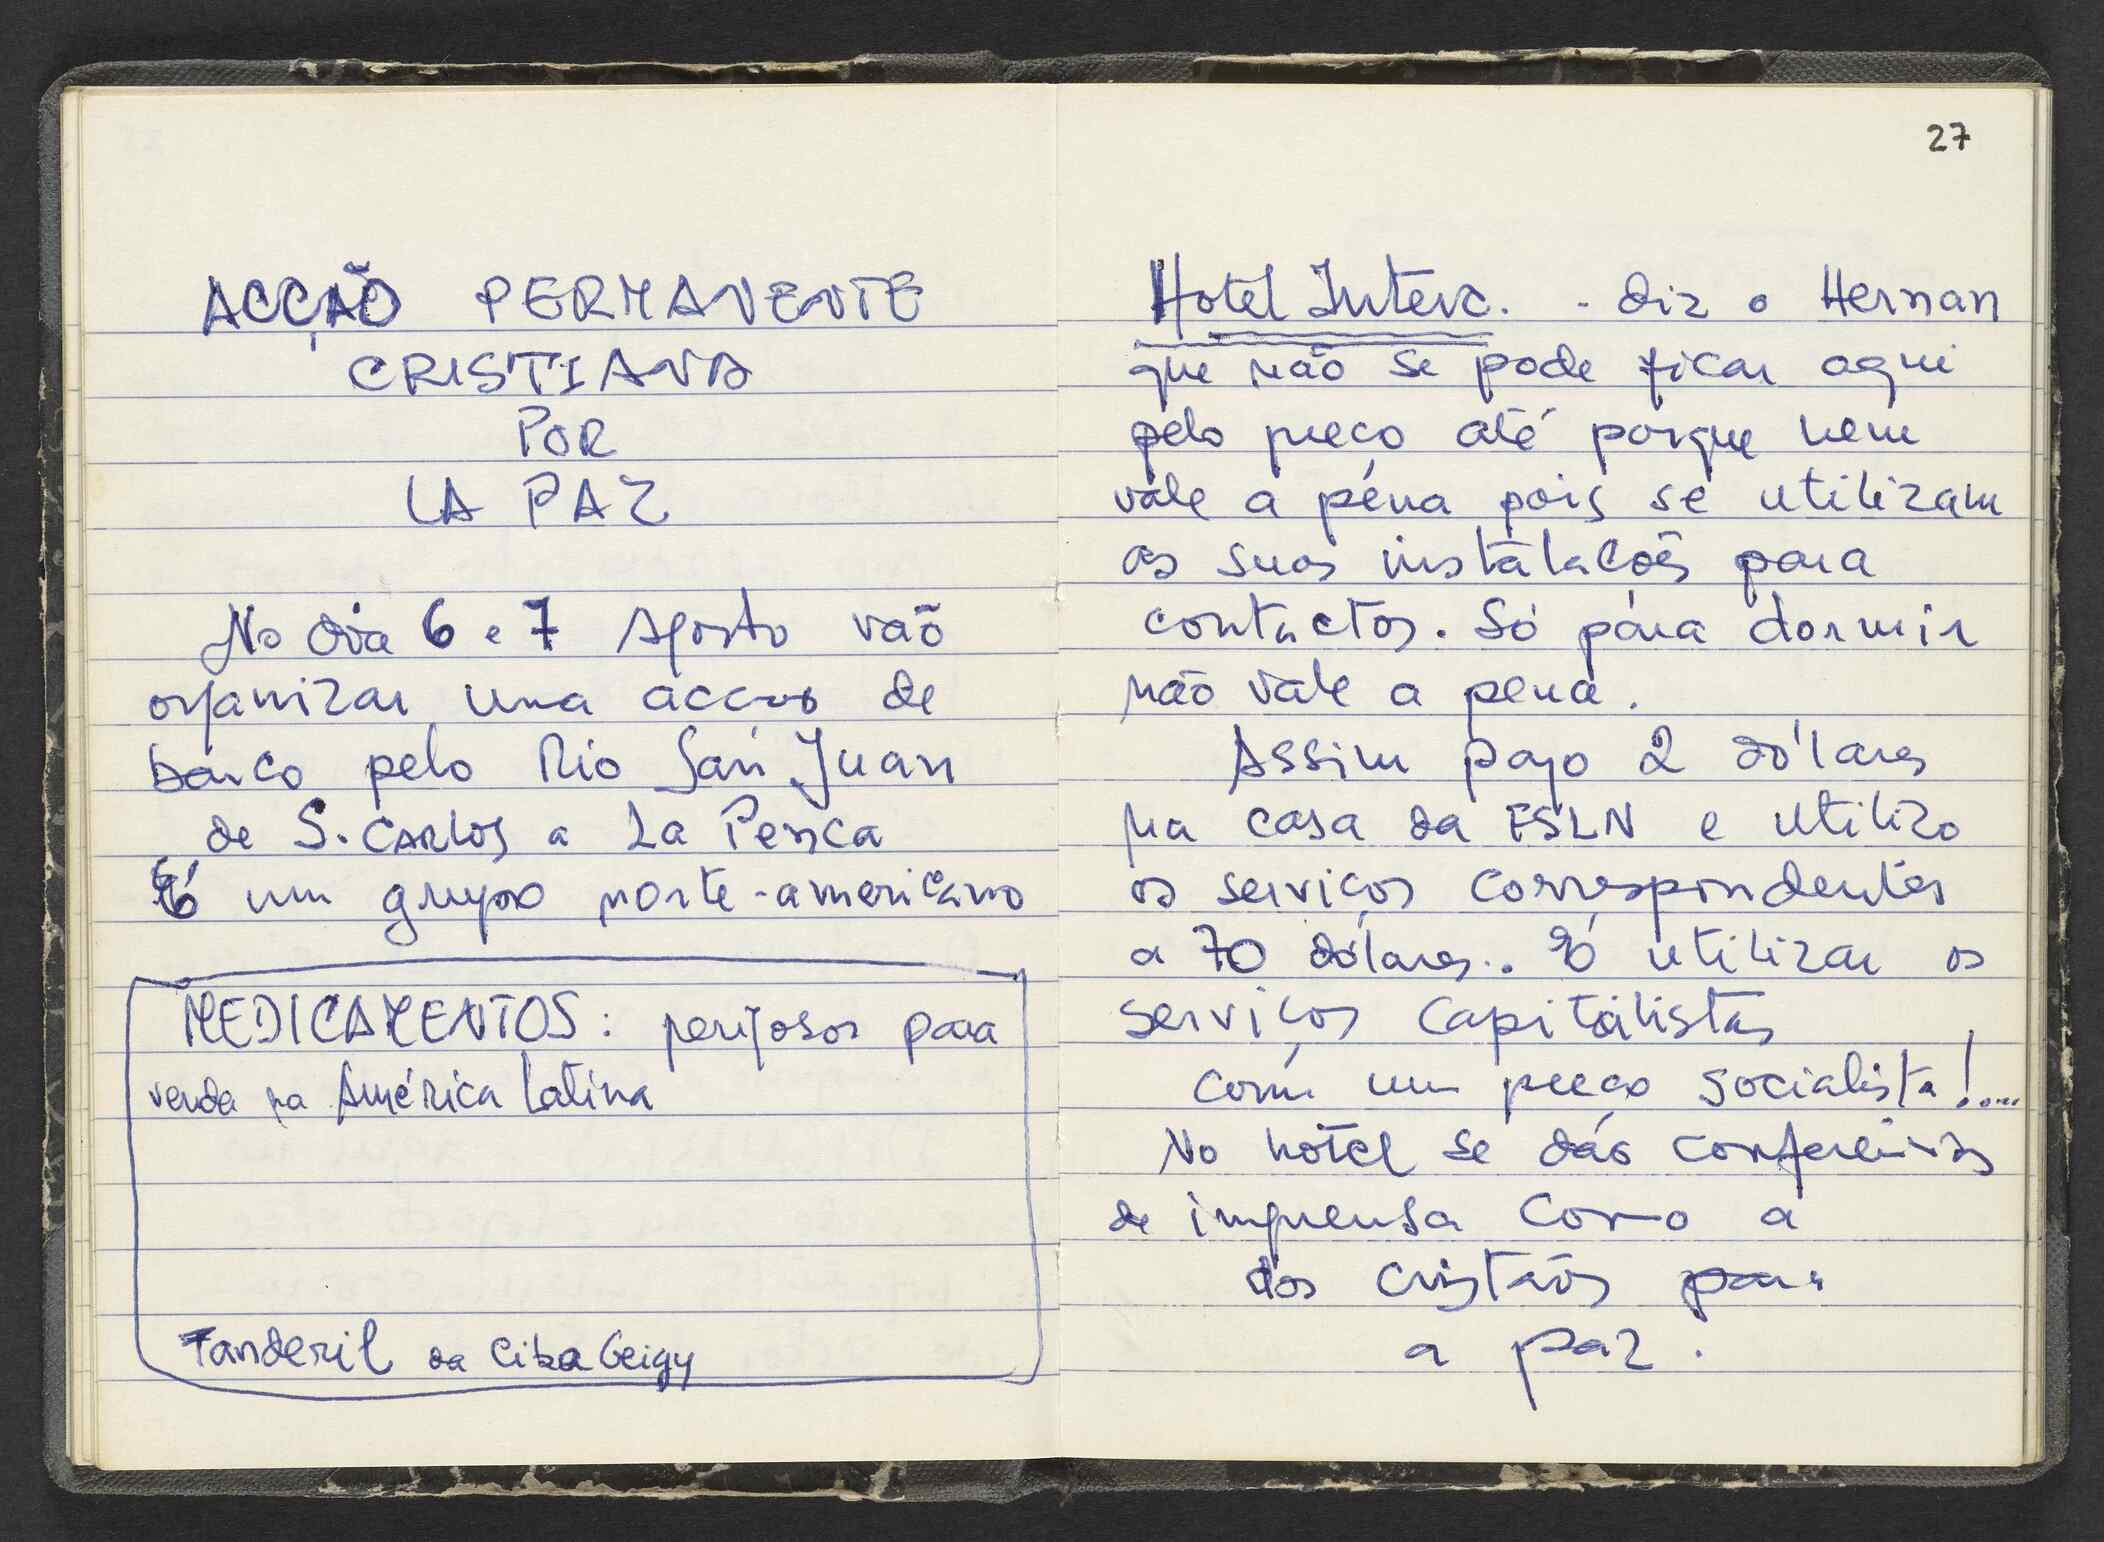 ACCÇÃO PERMANENTE
CRISTIANA
POR
LA PAZ
No dia 6 e 7 Agosto vão
organizar uma accao de
barco pelo Rio San Juan
de S. CARLOS a La Penca
É um grupo norte-americano
MEDICAMENTOS: perigosos para
venda na América Latina
Tanderil da Ciba Geigy
27
Hotel Interc. - diz o Hernan
que não se pode ficar aqui
pelo preço até porque nem
vale a pena pois se utilizam
as suas instalações para
contactos. Só para dormir
não vale a pena.
Assim pago 2 dólares
na casa da FSLN e utilizo
os serviços correspondentes
a 70 dólares.. É utilizar os
serviços capitalistas
com um preço socialista!...
No hotel se dão conferências
de imprensa como a
dos cristãos para
a paz.